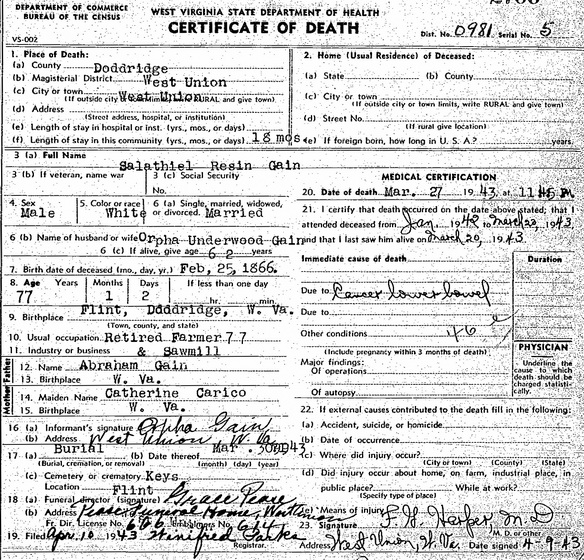 DEPARTMENT OF COMMERCE
BUREAU OF THE CENSUS
WEST VIRGINIA STATE DEPARTMENT OF HEALTH
CERTIFICATE OF DEATH
Dist. No. 0981 Serial No. 5
VS-002
1. Place of Death:
(a) County Doddridge
(b) Magisterial District West Union
(c) City or town West Union
(If outside city or town limits, write RURAL and give town)
(d) Address
(Street address, hospital, or institution)
(e) Length of stay in hospital or inst. (yrs., mos., or days)
(f) Length of stay in this community (yrs., mos., or days) 18 mos.
2. Home (Usual Residence) of Deceased:
(a) State (b) County
(c) City or town
(If outside city or town limits, write RURAL and give town)
(d) Street No.
(If rural give location)
(e) If foreign born, how long in U. S. A.? years.
3 (a) Full Name
Salathiel Resin Gain
3 (b) If veteran, name war 3 (c) Social Security
No.
4. Sex Male
5. Color or race White
6 (a) Single, married, widowed, or divorced. Married
6 (b) Name of husband or wife Orpha Underwood Gain
6 (c) If alive, give age 62 years
7. Birth date of deceased (mo., day, yr.) Feb, 25, 1866.
8. Age Years Months Days If less than one day
77 1 2 hr. min.
9. Birthplace Flint, Doddridge, W. Va.
(Town, county, and state)
10. Usual occupation Retired Farmer 77
11. Industry or business & Sawmill
Father
12. Name Abraham Gain
13. Birthplace W. Va.
Mother
14. Maiden Name Catherine Carico
15. Birthplace W. Va.
16 (a) Informant's signature Orpha Gain
(b) Address West Union, W. Va
17 (a) Burial (b) Date thereof Mar. 30 1943
(Burial, cremation, or removal) (month) (day) (year)
(c) Cemetery or crematory Keys
Location Flint
18 (a) Funeral director (signature) Grace Pease
(b) Address Pease Funeral Home, West
Fr. Dir. License No. 676 614
19. Filed Apr. 10, 1943 Winifred Parks
Registrar.
MEDICAL CERTIFICATION
20. Date of death Mar. 27 1943 at 11:45 P.M
21. I certify that death occurred on the date above stated; that I
attended deceased from Jan. 1942 to March 1943
and that I last saw him alive on March 20, 1943
Immediate cause of death Duration
Due to Cancer lower bowel
Due to
Other conditions 46 e
(Include pregnancy within 3 months of death)
Major findings:
Of operations
Of autopsy
PHYSICIAN
Underline the cause to which death should be charged statistically.
22. If external causes contributed to the death fill in the following:
(a) Accident, suicide, or homicide
(b) Date of occurrence
(c) Where did injury occur?
(City or town) (County) (State)
(d) Did injury occur about home, on farm, industrial place, in
public place? While at work?
(Specify type of place)
(e) Means of injury
23. Signature F. W. Harper, M.D
(M.D. or other)
Address West Union, W. Va. Date signed 4-9-43